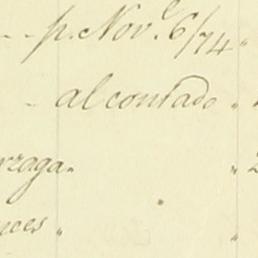 p. Nov.e 6/74 "
al contado "
rzaga "
nces "